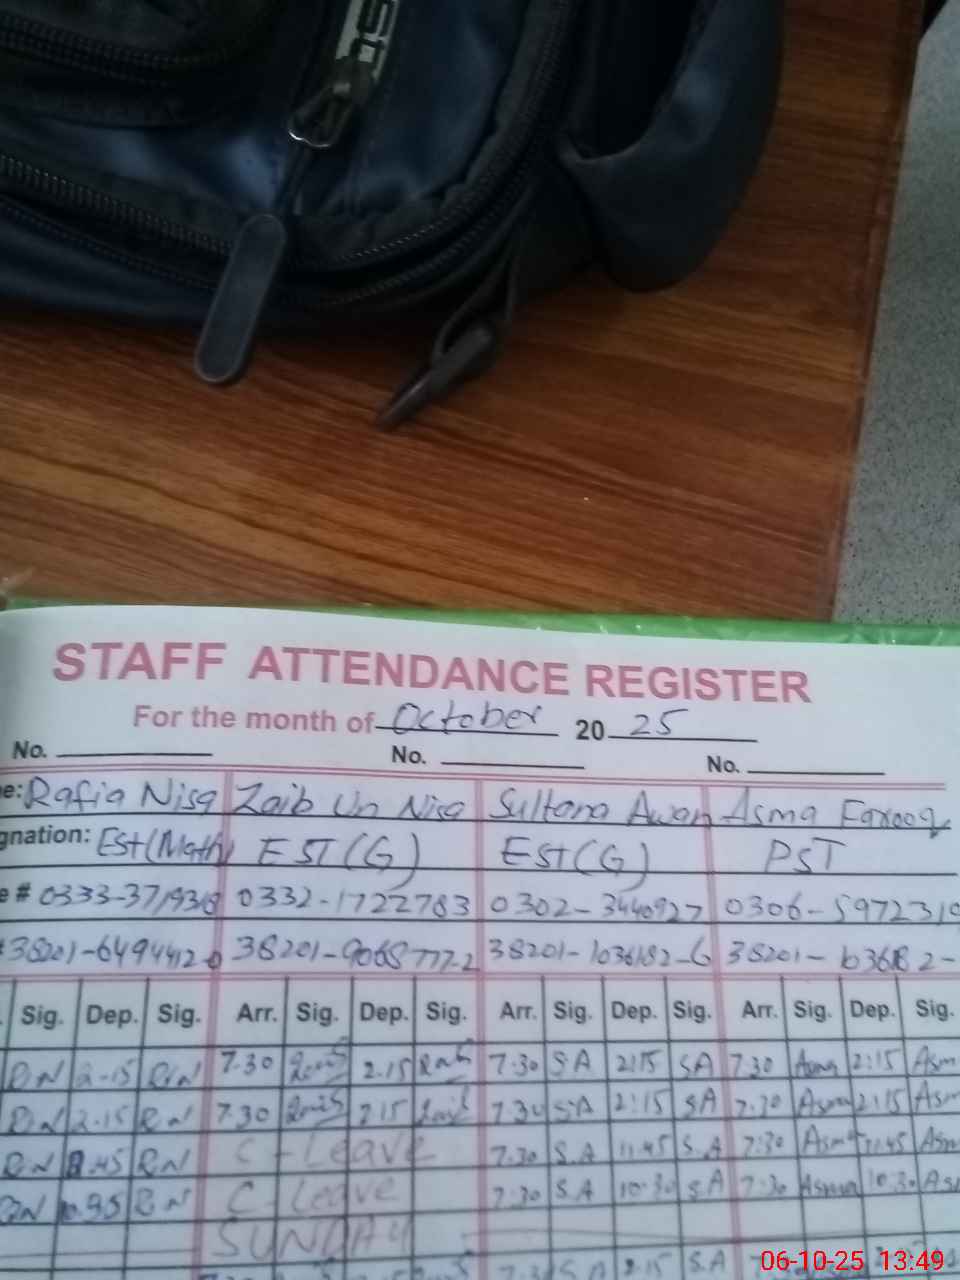 STAFF ATTENDANCE REGISTER
For the month of October 20 25
No. No. No.
e: Rafia Nisa Zaib Un Nisa Sultana Awan Asma Farooq
gnation: Est(Math) EST(G) EST(G) PST
e # 0332-1722783 0302-3440927 0306-597231
38201-6494412-0 38201-9068777-2 38201-1036182-6 38201-
Sig. Dep. Sig. Arr. Sig. Dep. Sig. Arr. Sig. Dep. Sig. Arr. Sig. Dep. Sig.
RN 2-15 RN 7.30 2.15 7.30 S.A 2:15 SA 7.30 Asma 2:15 Asm
RN 2.15 RN 7.30 2.15 7.30 S.A 2:15 SA 7.30 Asma 2:15 Asm
RN RN C-Leave 7.30 S.A 11.45 S.A 7:30 Asma 11.45 Asm
RN RN C-Leave 7:30 S.A 10:30 S.A 7:30 Asma 10:30 As
SUNDAY
S.A 2.15 S.A
06-10-25 13:49